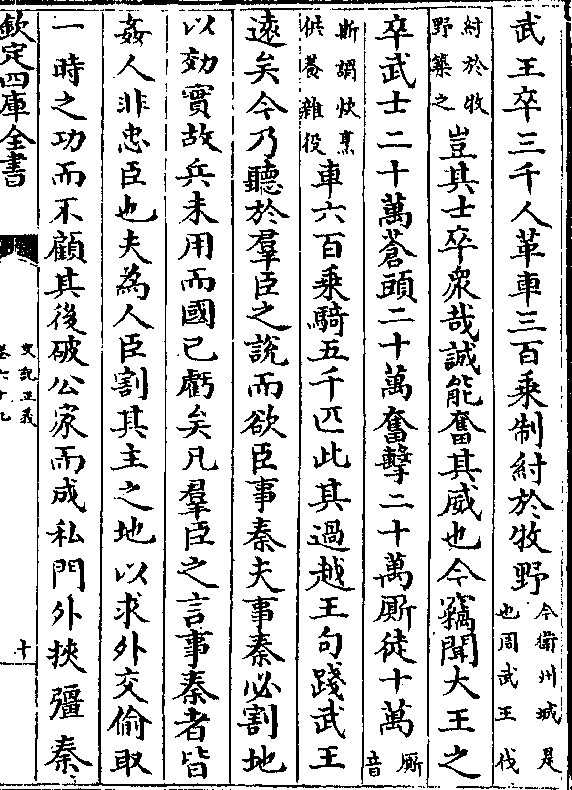 武王卒三千人革車三百乘制紂於牧野今衛州城是也周武王伐
紂於牧野築之豈其士卒衆哉誠能奮其威也今竊聞大王之
卒武士二十萬蒼頭二十萬奮擊二十萬厮徒十萬厮音
斯謂炊烹供養雜役車六百乘騎五千匹此其過越王句踐武王
遠矣今乃聽於羣臣之說而欲臣事秦夫事秦必割地
以効實故兵未用而國已虧矣凡羣臣之言事秦者皆
姦人非忠臣也夫為人臣割其主之地以求外交偷取
一時之功而不顧其後破公家而成私門外挾彊秦
欽定四庫全書
史記正義
卷六十九
十